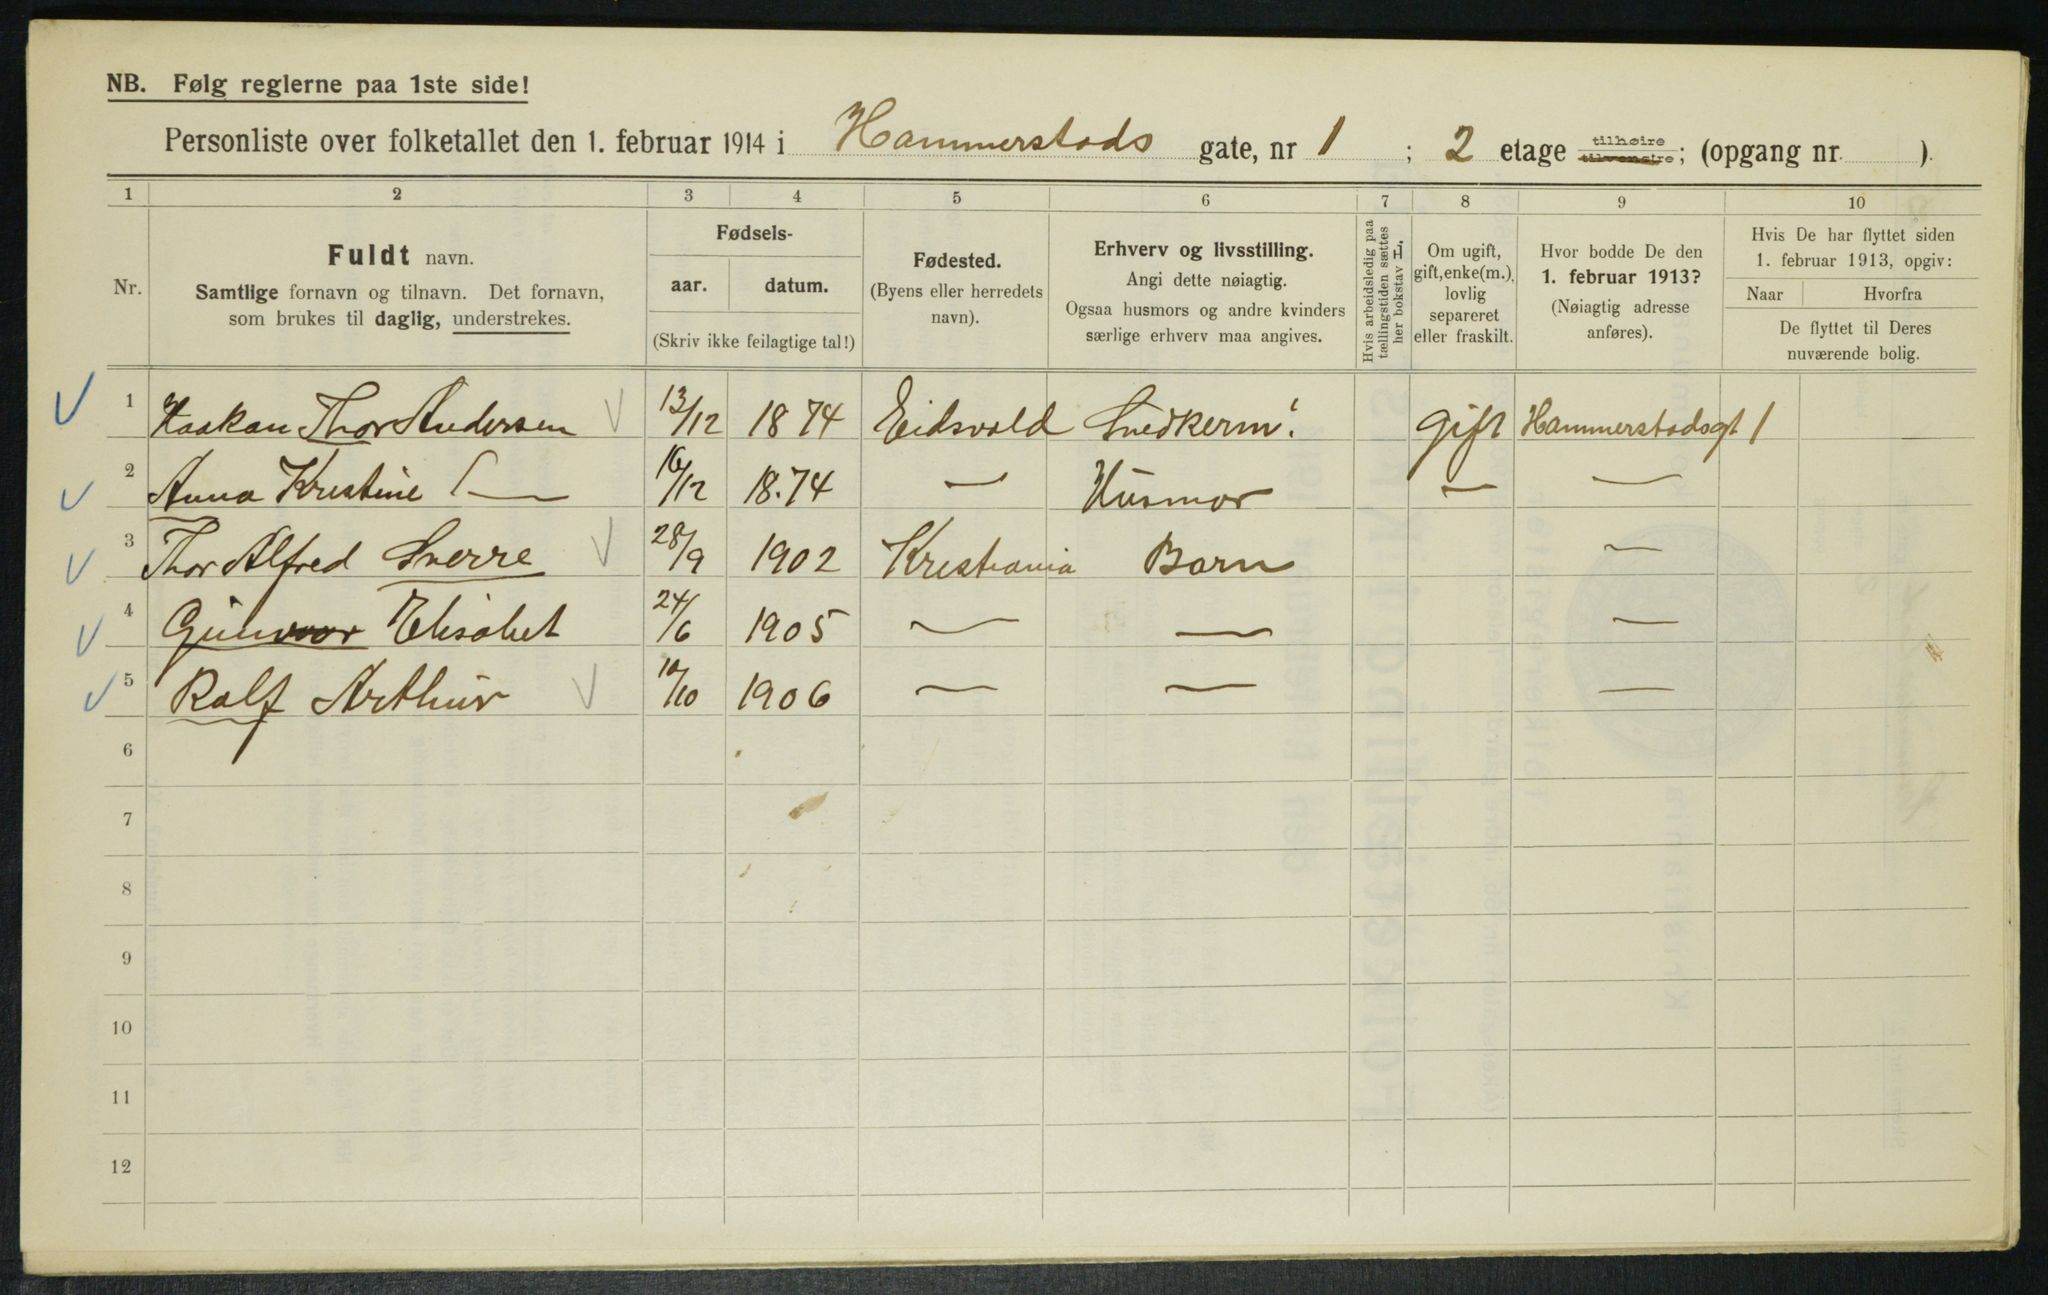 NB. Følg reglerne paa 1ste side!
Personliste over folketallet den 1. februar 1914 i Hammerstads gate, nr 1 ; 2 etage tilhøire tilvenstre; (opgang nr. ).
1 2 3 4 5 6 7 8 9 10
Nr.
Fuldt navn.
Samtlige fornavn og tilnavn. Det fornavn,
som brukes til daglig, understrekes.
Fødsels-
aar. datum.
(Skriv ikke feilagtige tal!)
Fødested.
(Byens eller herredets
navn).
Erhverv og livsstilling.
Angi dette nøiagtig.
Ogsaa husmors og andre kvinders
særlige erhverv maa angives.
Hvis arbeidsledig paa
tællingstiden sættes
her bokstav L.
Om ugift,
gift, enke(m.),
lovlig
separeret
eller fraskilt.
Hvor bodde De den
1. februar 1913?
(Nøiagtig adresse
anføres).
Hvis De har flyttet siden
1. februar 1913, opgiv:
Naar Hvorfra
De flyttet til Deres
nuværende bolig.
1 Haakan Thor Andersen 13/12 1874 Eidsvold Snedkerm. gift Hammerstadsgt 1
2 Anna Kristine — 16/12 18.74 — Husmor — —
3 Thor Alfred Sverre 28/9 1902 Kristiania Barn —
4 Gunvor Elisabet 24/6 1905 — — —
5 Ralf Arthur 10/10 1906 — — —
6
7
8
9
10
11
12